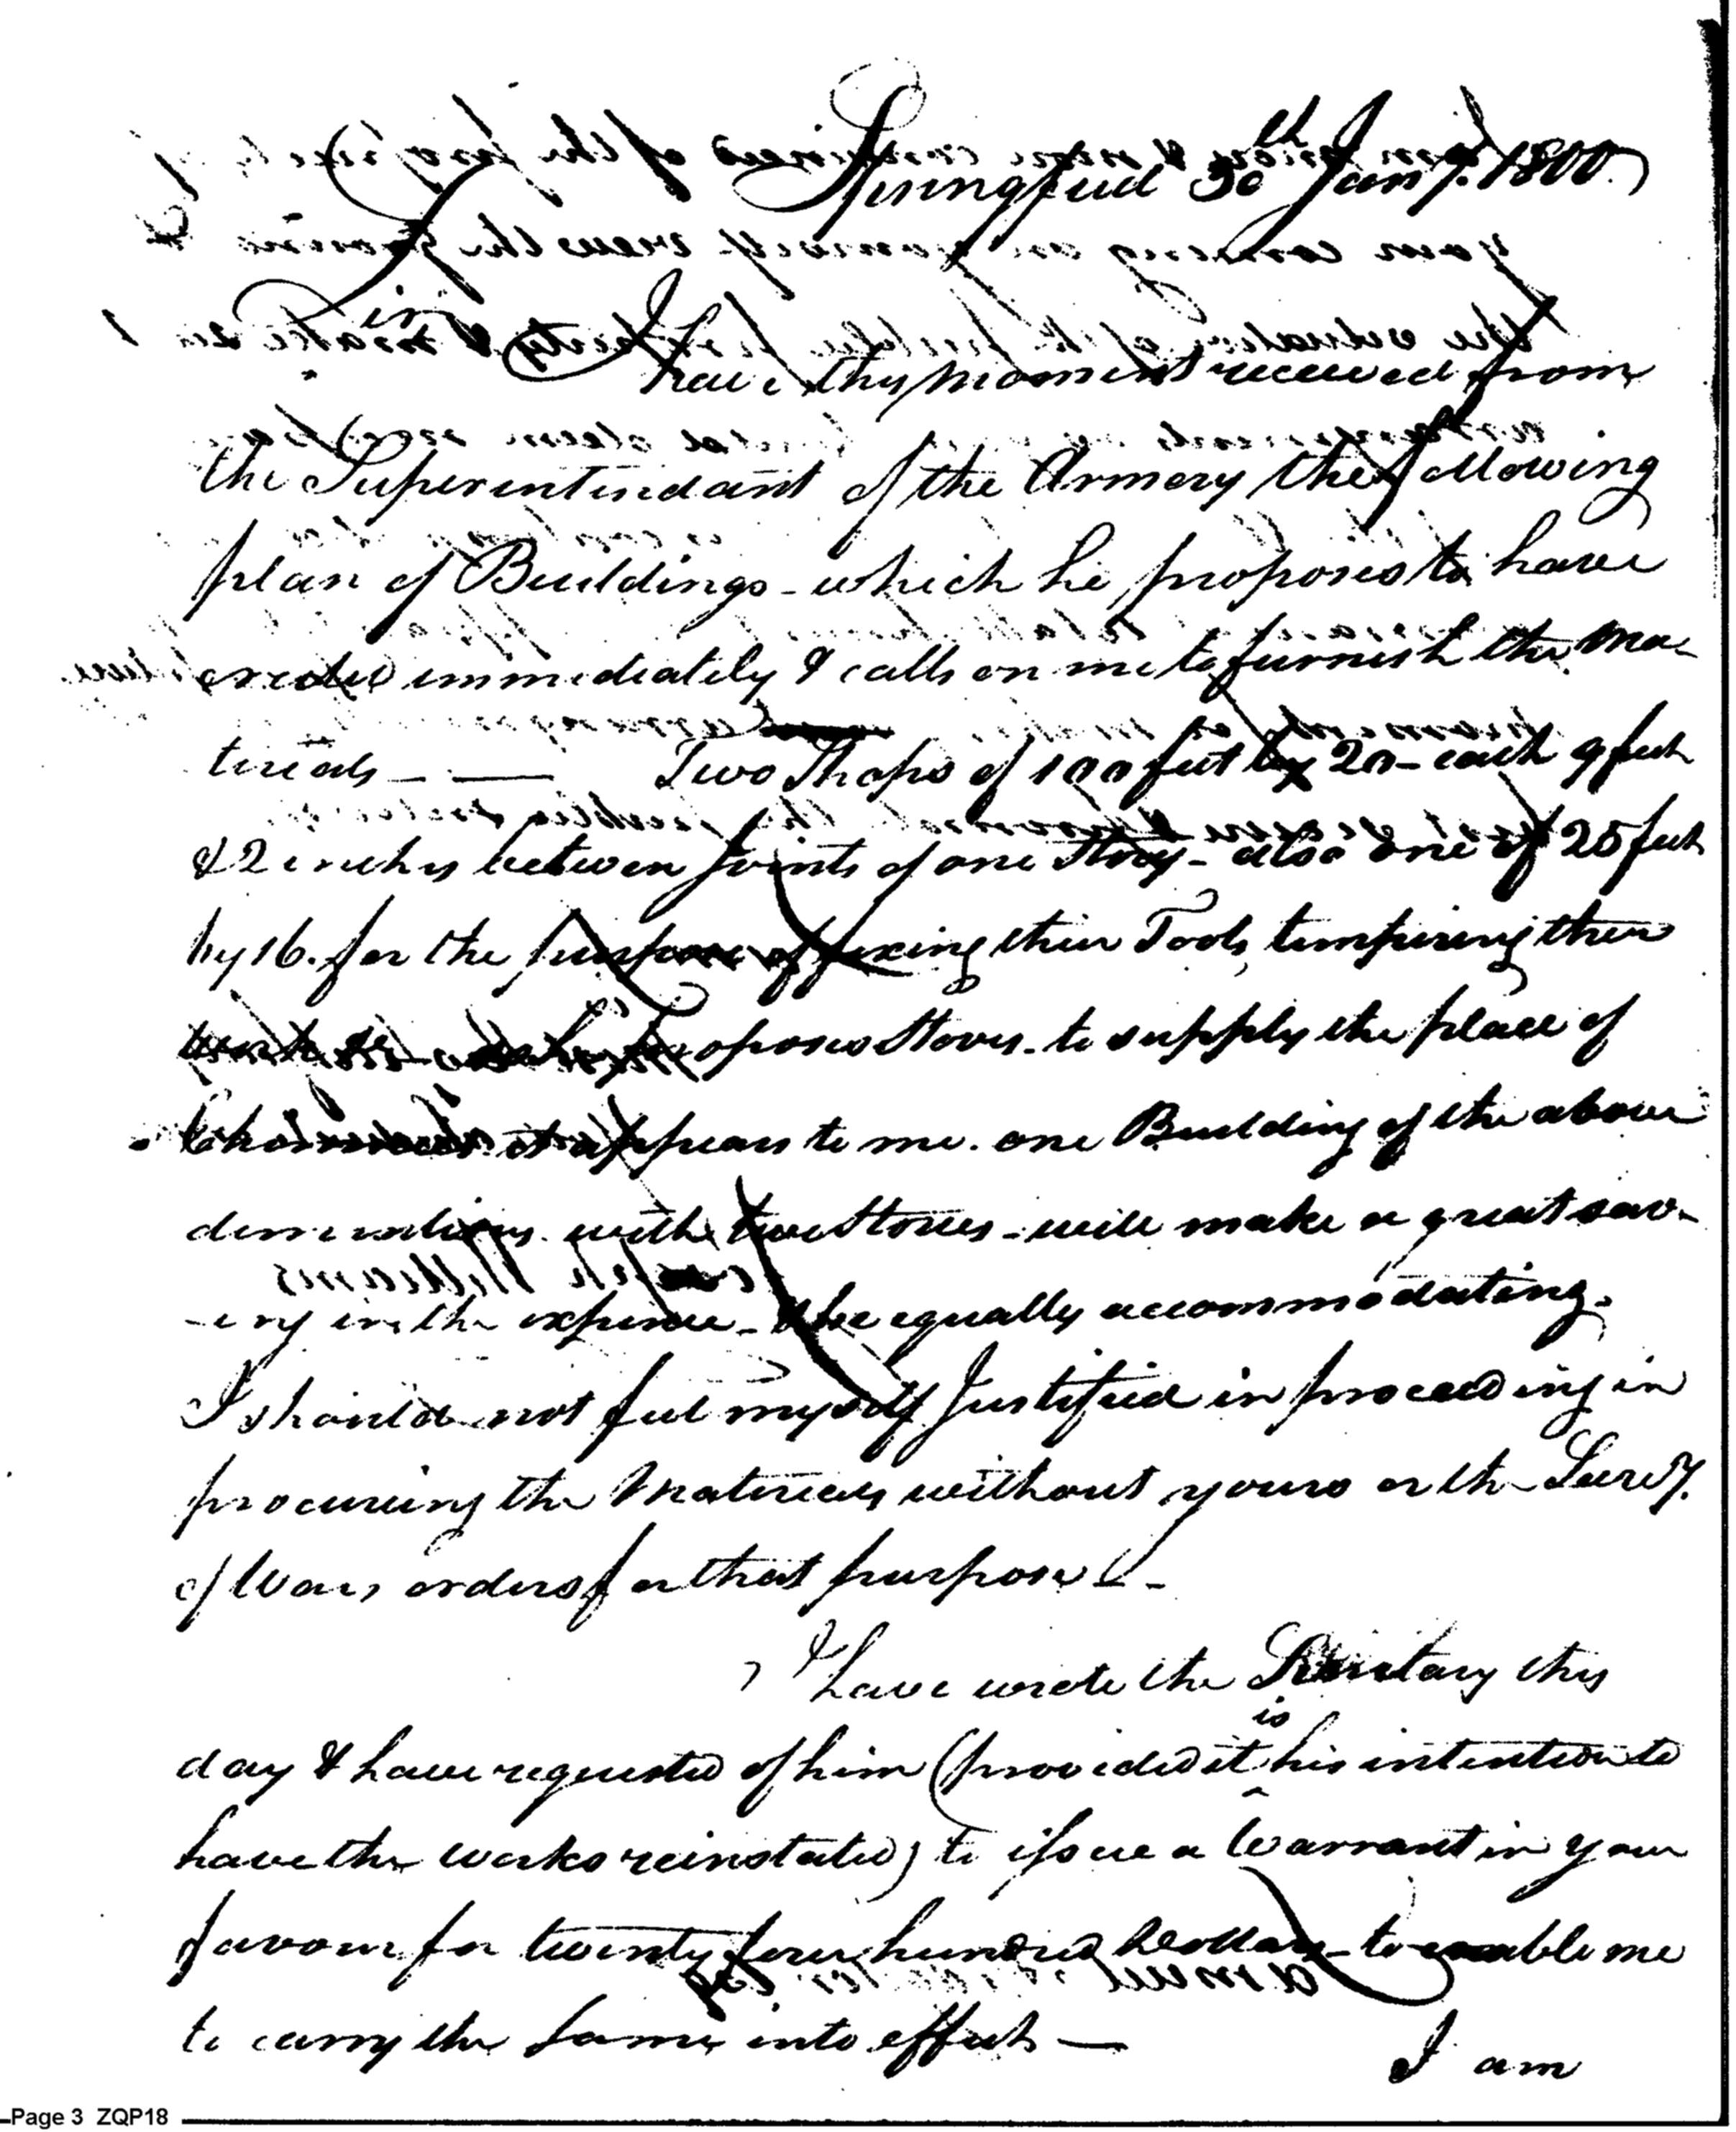 Springfield 30th Jany. 1800
Sir
I have this moment received from
the Superintendant of the Armory the following
plan of Buildings - which he proposes to have
erected immediately & calls on me to furnish the Ma-
terials — — Two Shops of 100 feet by 20 - each 9 feet
& 2 inches between Joints of one Story - also one of 25 feet
by 16. for the purpose of fixing their Tools, tempering them
proposes Stoves - to supply the place of
it appears to me. one Building of the above
dimentions with two Stories - will make a great sav-
-ing in the expense - & be equally accommodating.
I should not feel myself Justified in proceeding in
procuring the Materials without yours or the Secrey.
of Wars orders for that purpose —
I have wrote the Secretary this
day & have requested of him (provided it is his intention to
have the works reinstated) to issue a Warrant in your
favour for twenty four hundred Dollars - to enable me
to carry the same into effect —
I am
Page 3 ZQP18